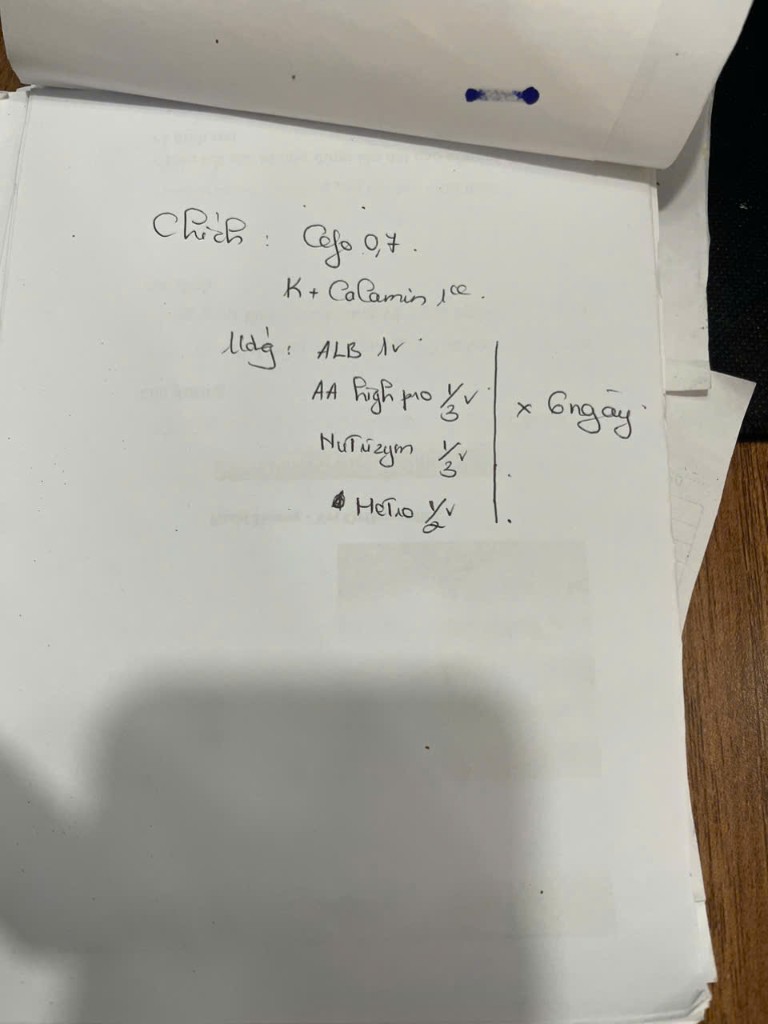 Chích : Cefo 0,7.
K + CaCamin 1cc.
Uống : ALB 1v
AA high pro 1/3 v
Nutrizym 1/3 v
Metro 1/2 v
x 6 ngày